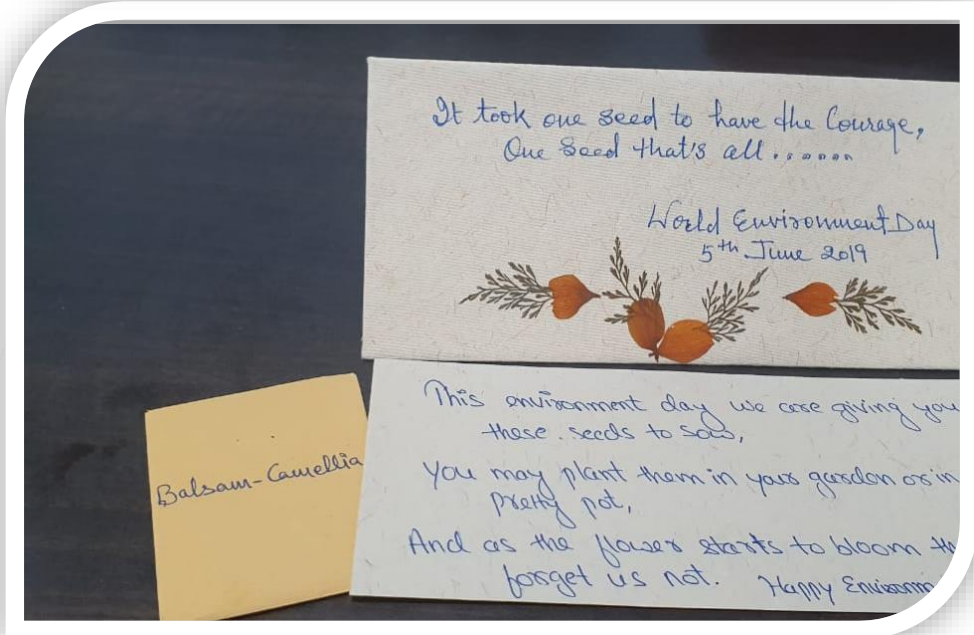 It took one seed to have the Courage,
One Seed that's all.......
World Environment Day
5th June 2019
This environment day we are giving you
these seeds to sow,
You may plant them in your garden or in
pretty pot,
And as the flower starts to bloom
forget us not. Happy
Balsam-Camellia